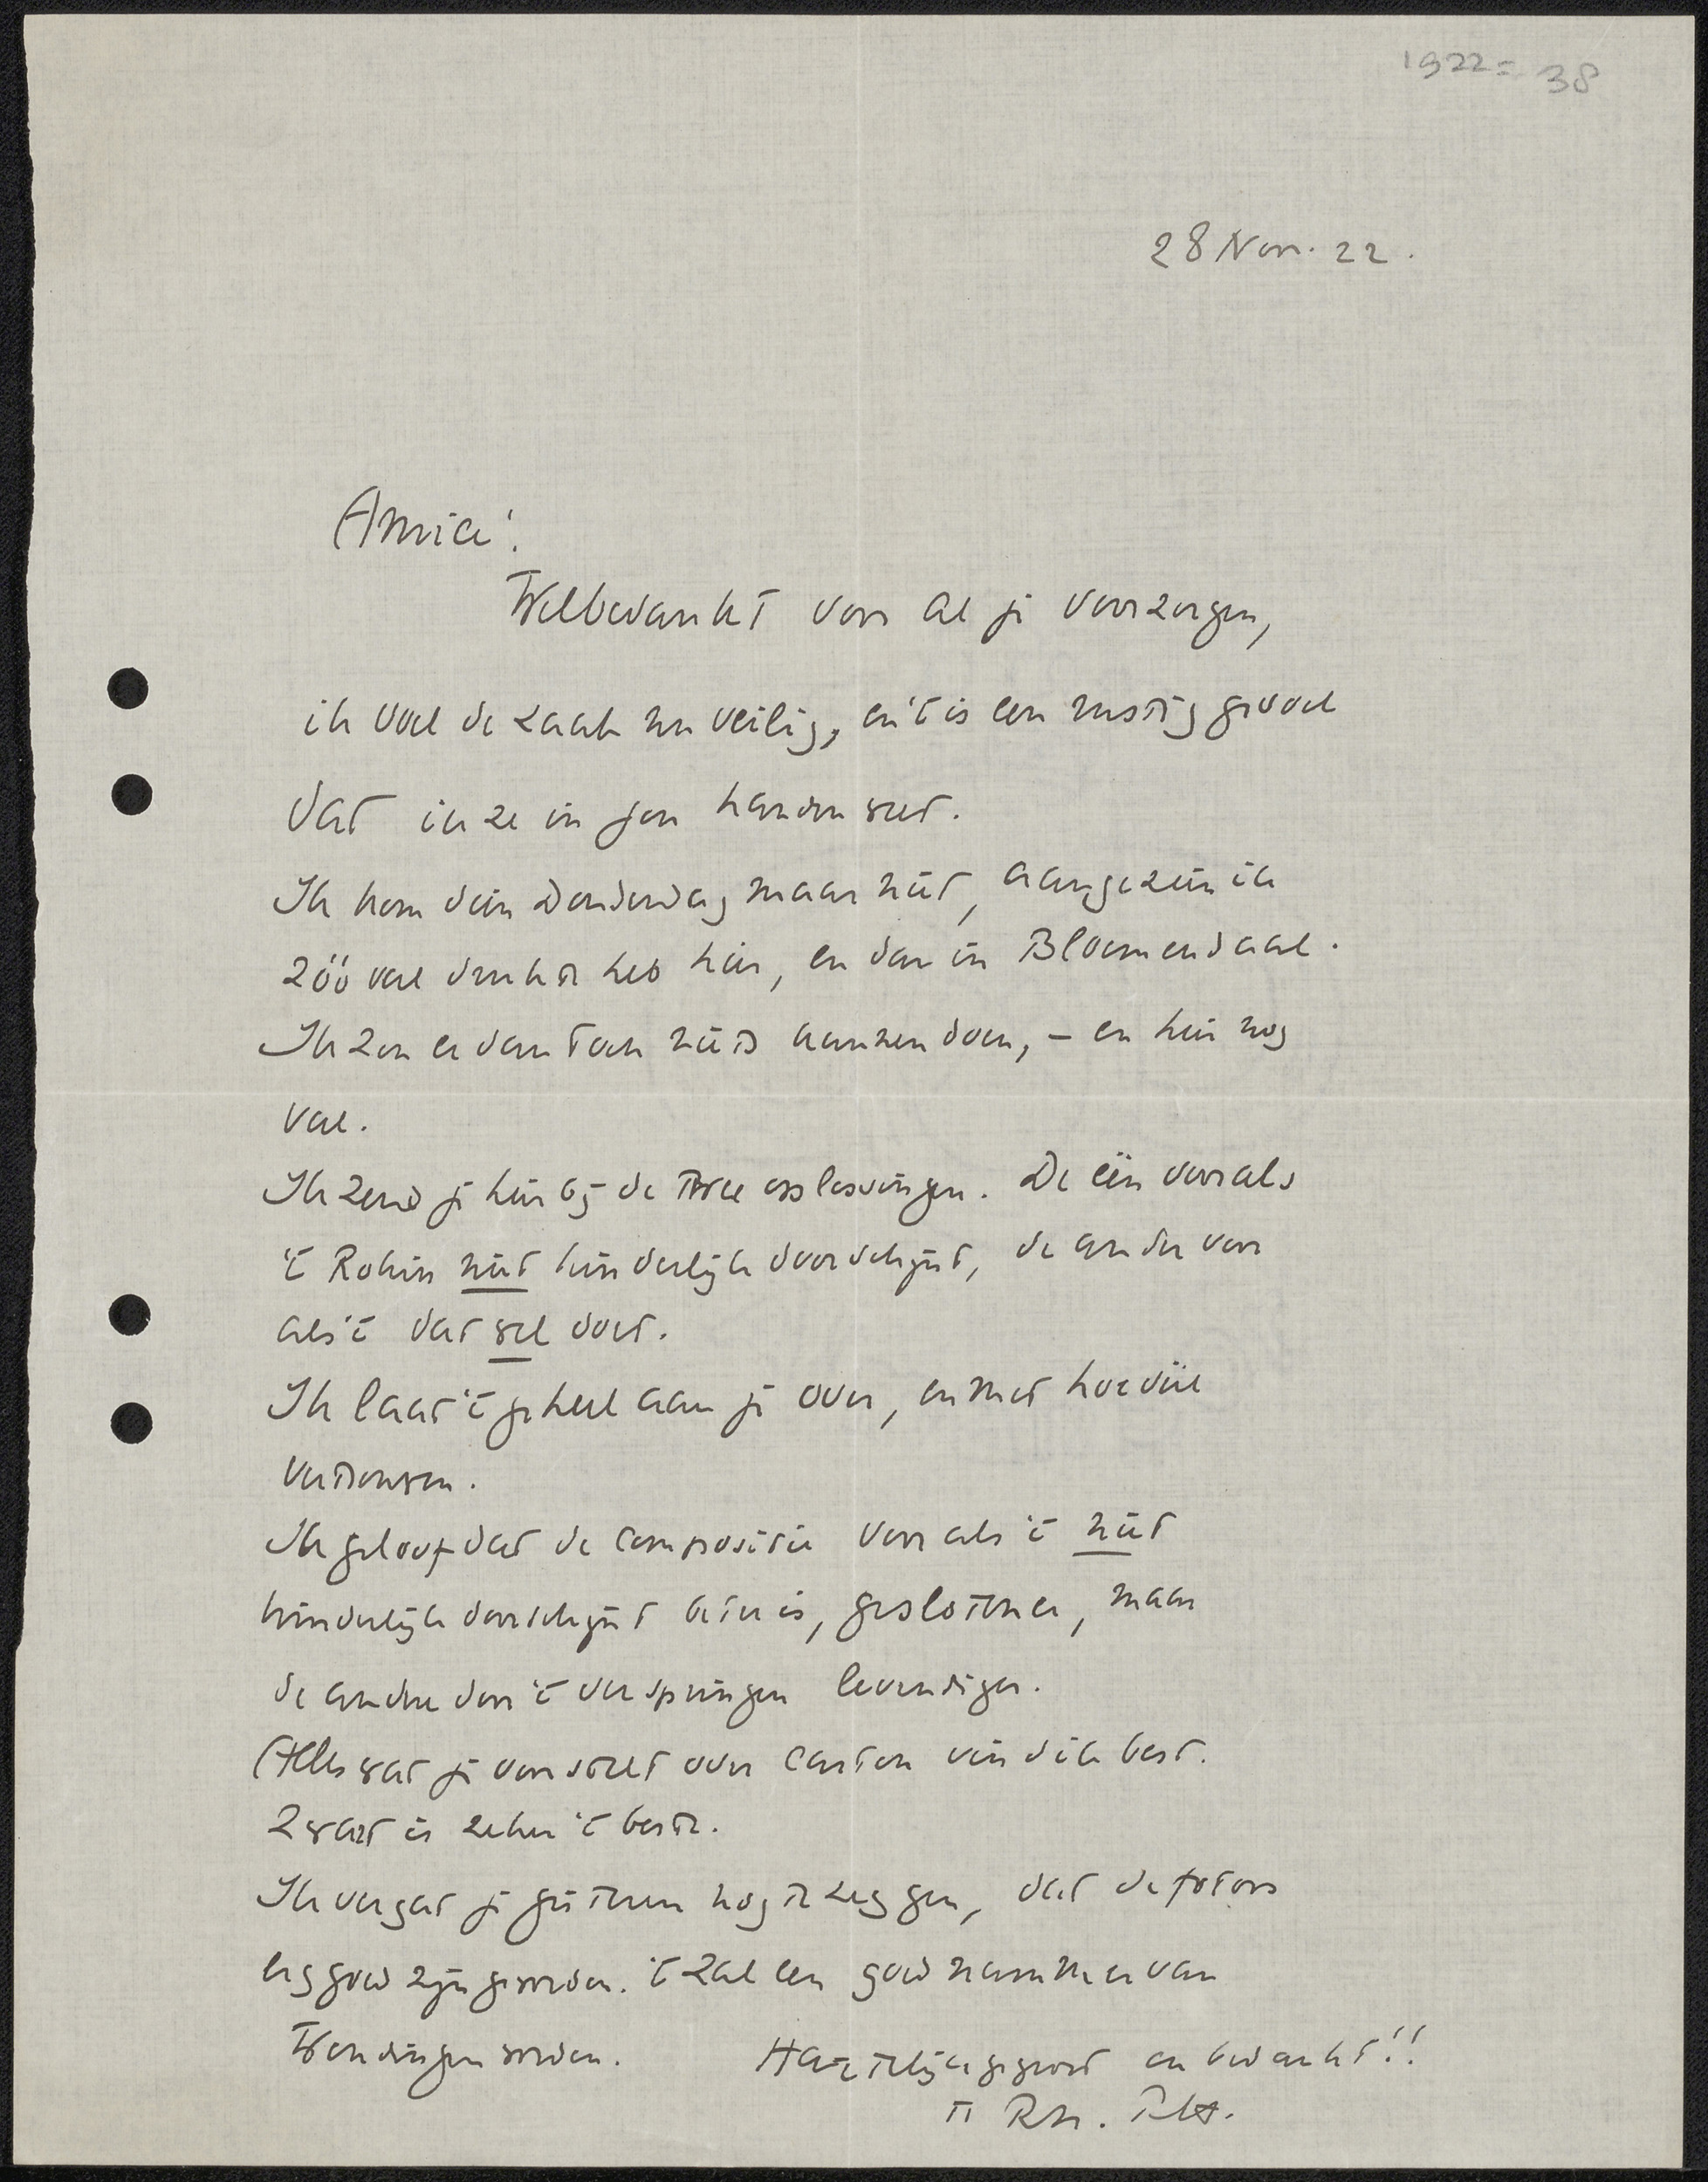 1922 = 38
28 Nov. 22.
Amice!
Welbedankt voor al je voorzorgen,
ik voel de zaak nu veilig, en 't is een rustig gevoel
dat ik ze in jou handen weet.
Ik kom dien Donderdag maar niet, aangezien ik
zóó veel drukte heb hier, en dan in Bloemendaal.
Ik zou er dan toch niets aan kunnen doen, – en hier nog
veel.
Ik zend je hier bij de twee oplossingen. De één voor als
't Rokin niet hinderlijk doorschijnt, de ander voor
als 't dat wel doet.
Ik laat 't geheel aan je over, en met hoe véél
vertrouwen.
Ik geloof dat de compositie voor als 't niet
hinderlijk doorschijnt beter is, geslotener, maar
de andere door 't verspringen levendiger.
Alles wat je voorstelt over carton vind ik best.
Zwart is zeker 't beste.
Ik vergat je gisteren nog te zeggen, dat de foto's
erg goed zijn geworden. 't Zal een goed nummer van
Wendingen worden. Hartelijk gegroet en bedankt!!